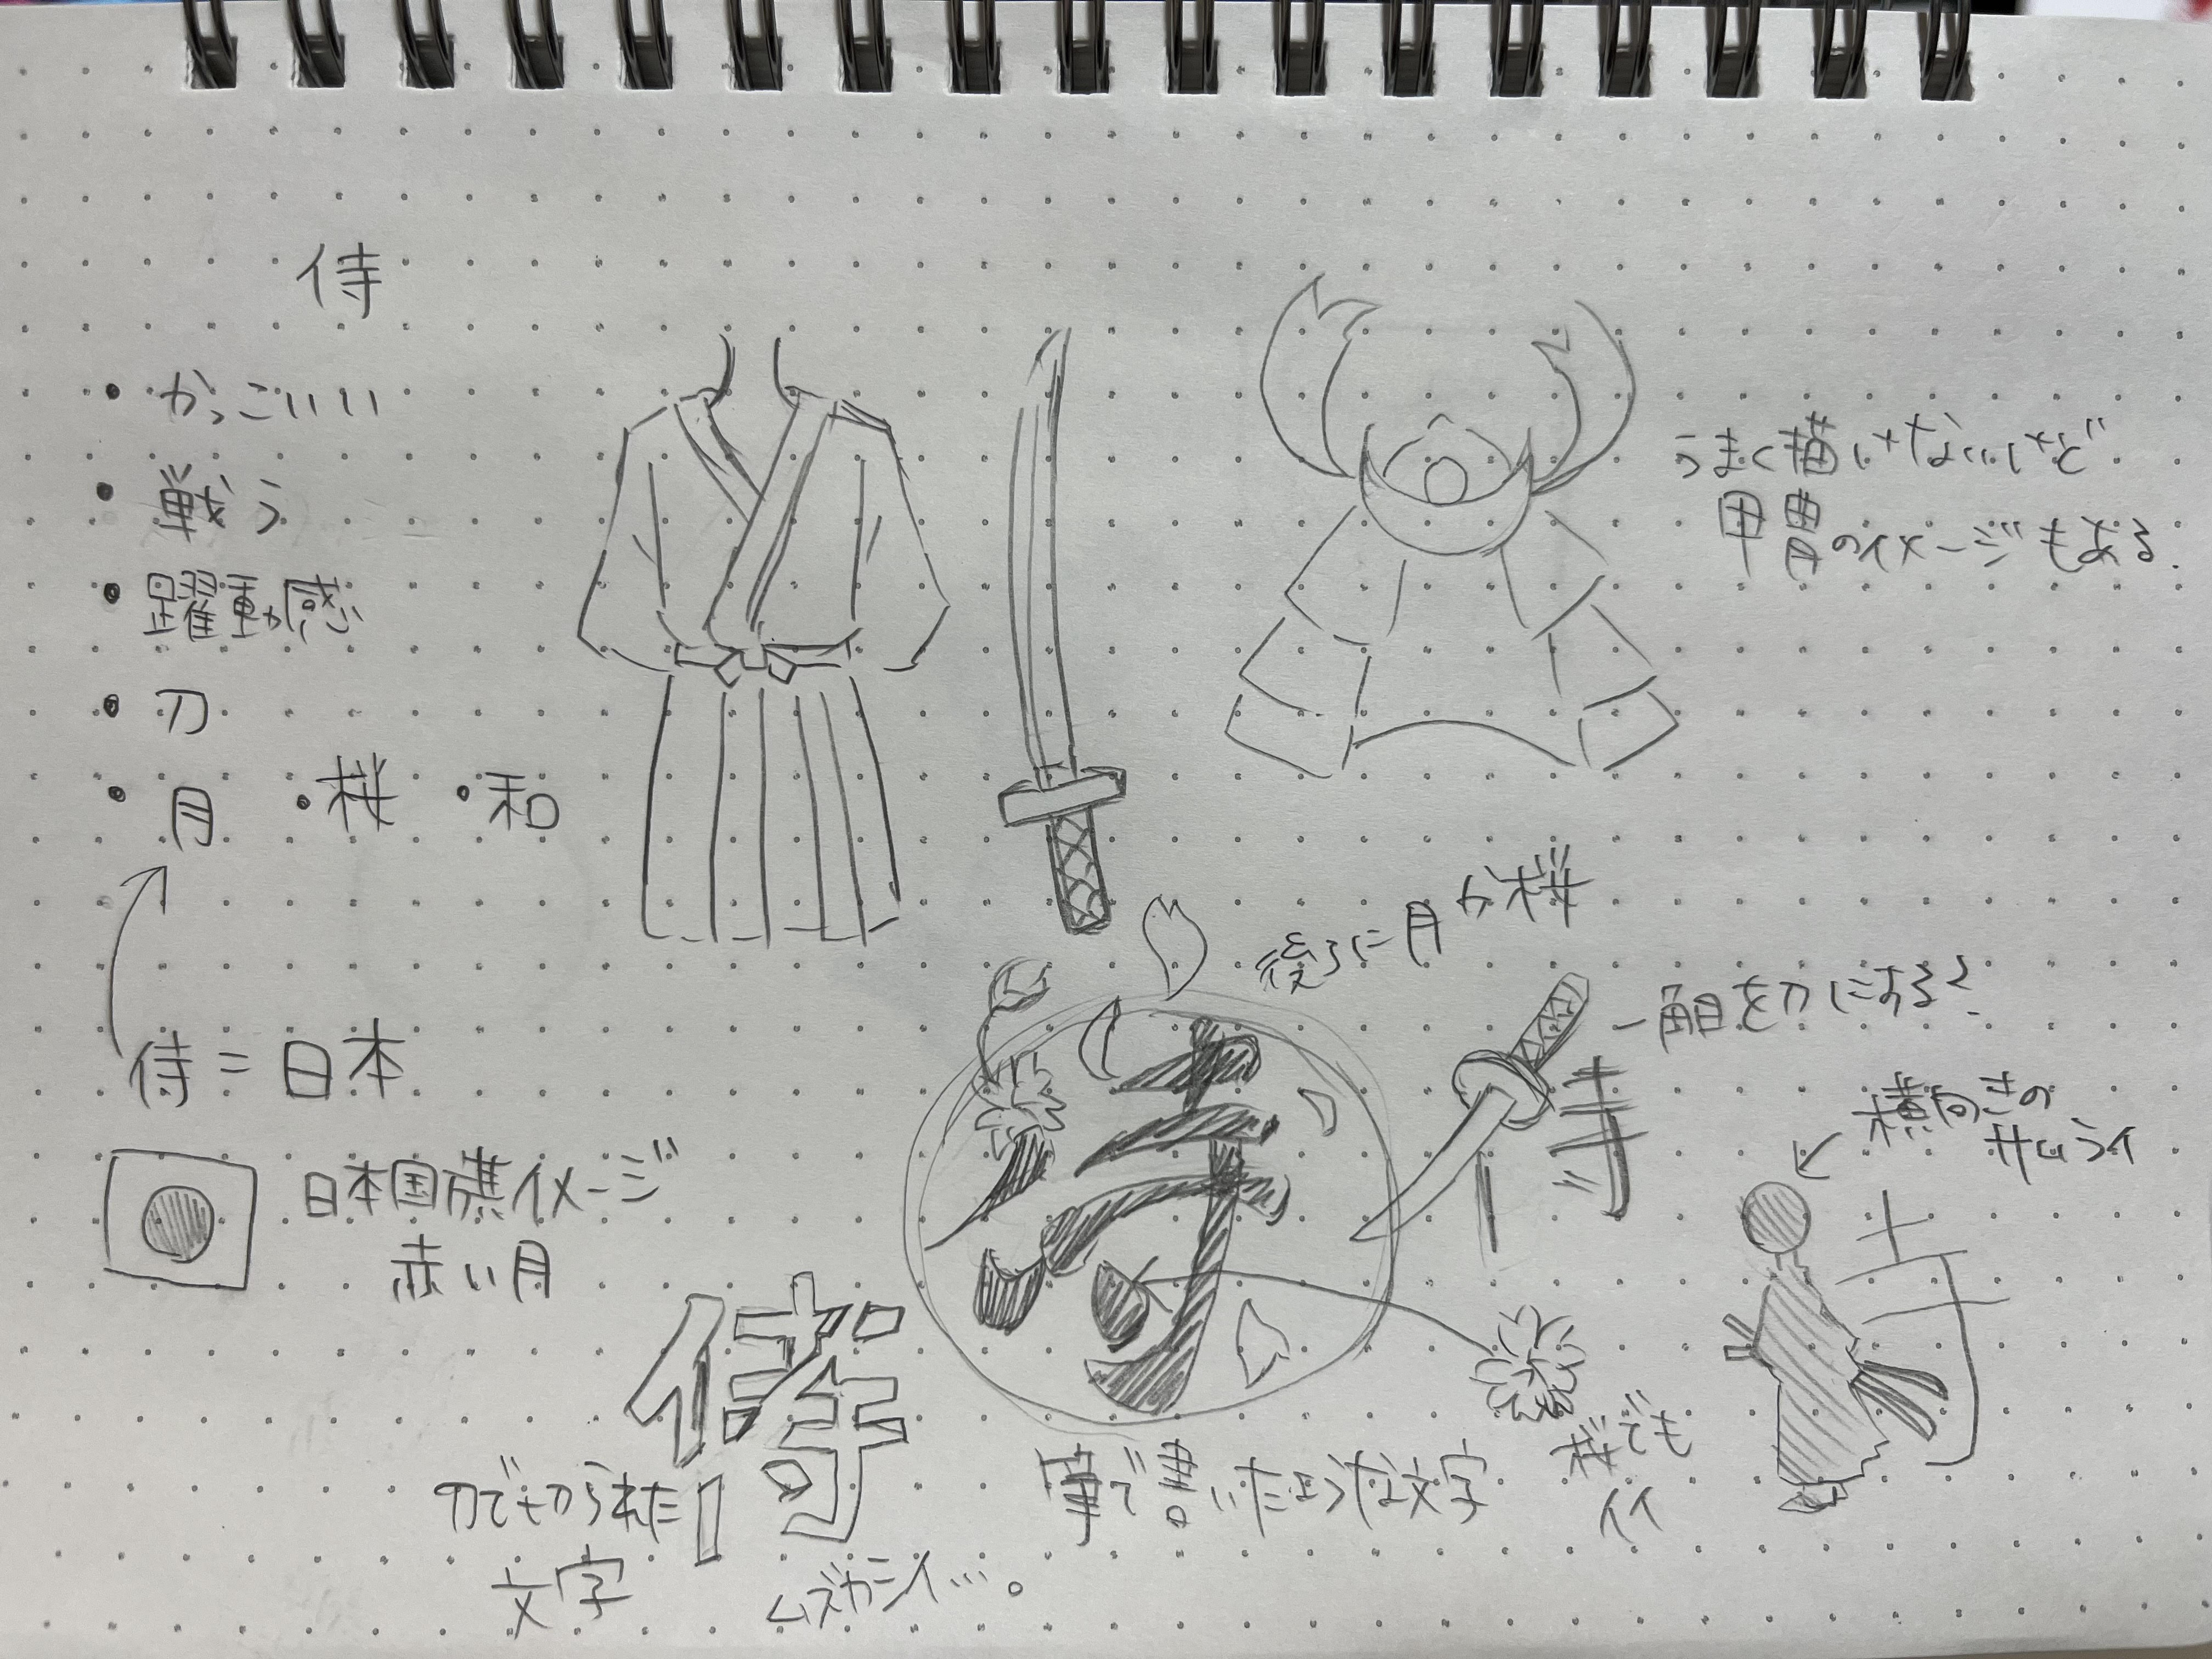 侍
・かっこいい
・戦う
・躍動感
・刀
・月 ・桜 ・和
侍=日本
日本国旗イメージ
赤い月
うまく描いてないけど
甲冑のイメージもある.
後ろに月か桜
一角を刀にする?
侍
横向きの
サムライ
寺
侍
侍
刀で切られた
文字
ムズカシイ…。
筆で書いたような文字
桜でも
イイ